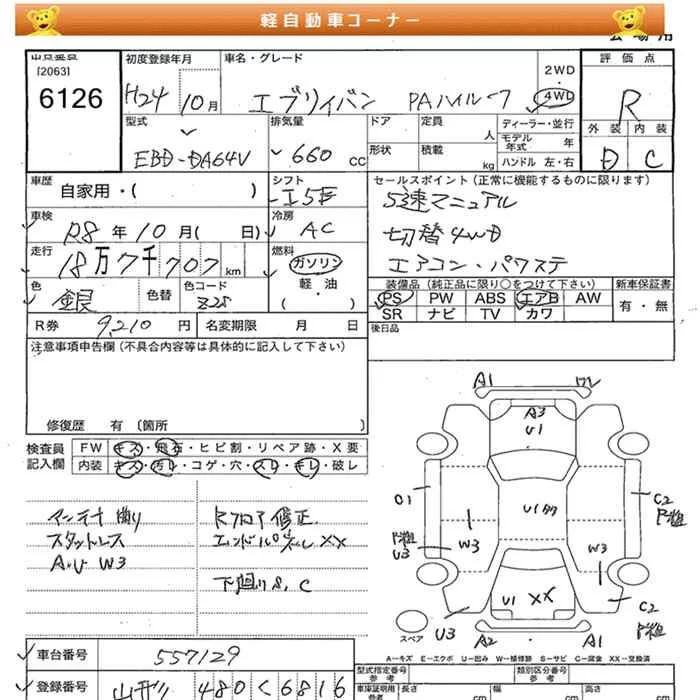 軽自動車コーナー
会場用
出品番号
[2063]
6126
初度登録年月
H24 10月
車名・グレード
エブリイバン PAハイルーフ
2WD
4WD
評価点
R
型式
EBD-DA64V
排気量
660 CC
ドア
定員
人
形状
積載
kg
ディーラー・並行
モデル年式 年
ハンドル 左・右
外装 内装
D C
車歴
自家用・( )
シフト
I5F
セールスポイント(正常に機能するものに限ります)
5速マニュアル
切替4WD
エアコン・パワステ
車検
R8年10月( 日)
冷房
AC
走行
18万7千707km
燃料
ガソリン
軽・油
( )
色
銀
色替
色コード
Z2S
装備品(純正品に限り○をつけて下さい)
PS PW ABS エアB AW
SR ナビ TV カワ
新車保証書
有・無
R券 9,210円
名変期限 月 日
後日品
注意事項申告欄(不具合内容等は具体的に記入して下さい)
修復歴 有〔箇所 〕
検査員記入欄
FW キズ・飛石・ヒビ割・リペア跡・X要
内装 キズ・汚レ・コゲ・穴・スレ・キレ・破レ
アンテナ曲り
スタットレス
A.U W3
Rフロア修正
エンドパネルXX
下廻りS,C
A1
ワレ
A3
U1
U1
W3
W3
U3
C2
U1 XX
C2
U3
A2
A1
スペア
A-キズ E-エクボ U-凹み W-補修跡 S-サビ C-腐食 XX-交換済
車台番号
557129
登録番号
480く6816
型式指定番号
参考
類別区分番号
参考
車庫証明用
参考
長さ cm
幅 cm
高さ cm